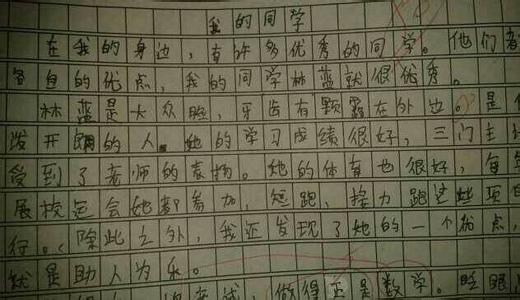 我的同学
在我的身边，有许多优秀的同学。他们有
各自的优点，我的同学林蓝就很优秀。
林蓝是大众脸，牙齿有颗露在外边。是
活开朗的人。她的学习成绩很好，三门主
受到了老师的表扬。她的体育也很好，每
展校运会她都参加，短跑，接力跑这些项
行。除此之外，我还发现了她的一个优点，
就是助人为乐。
做得正是数学。